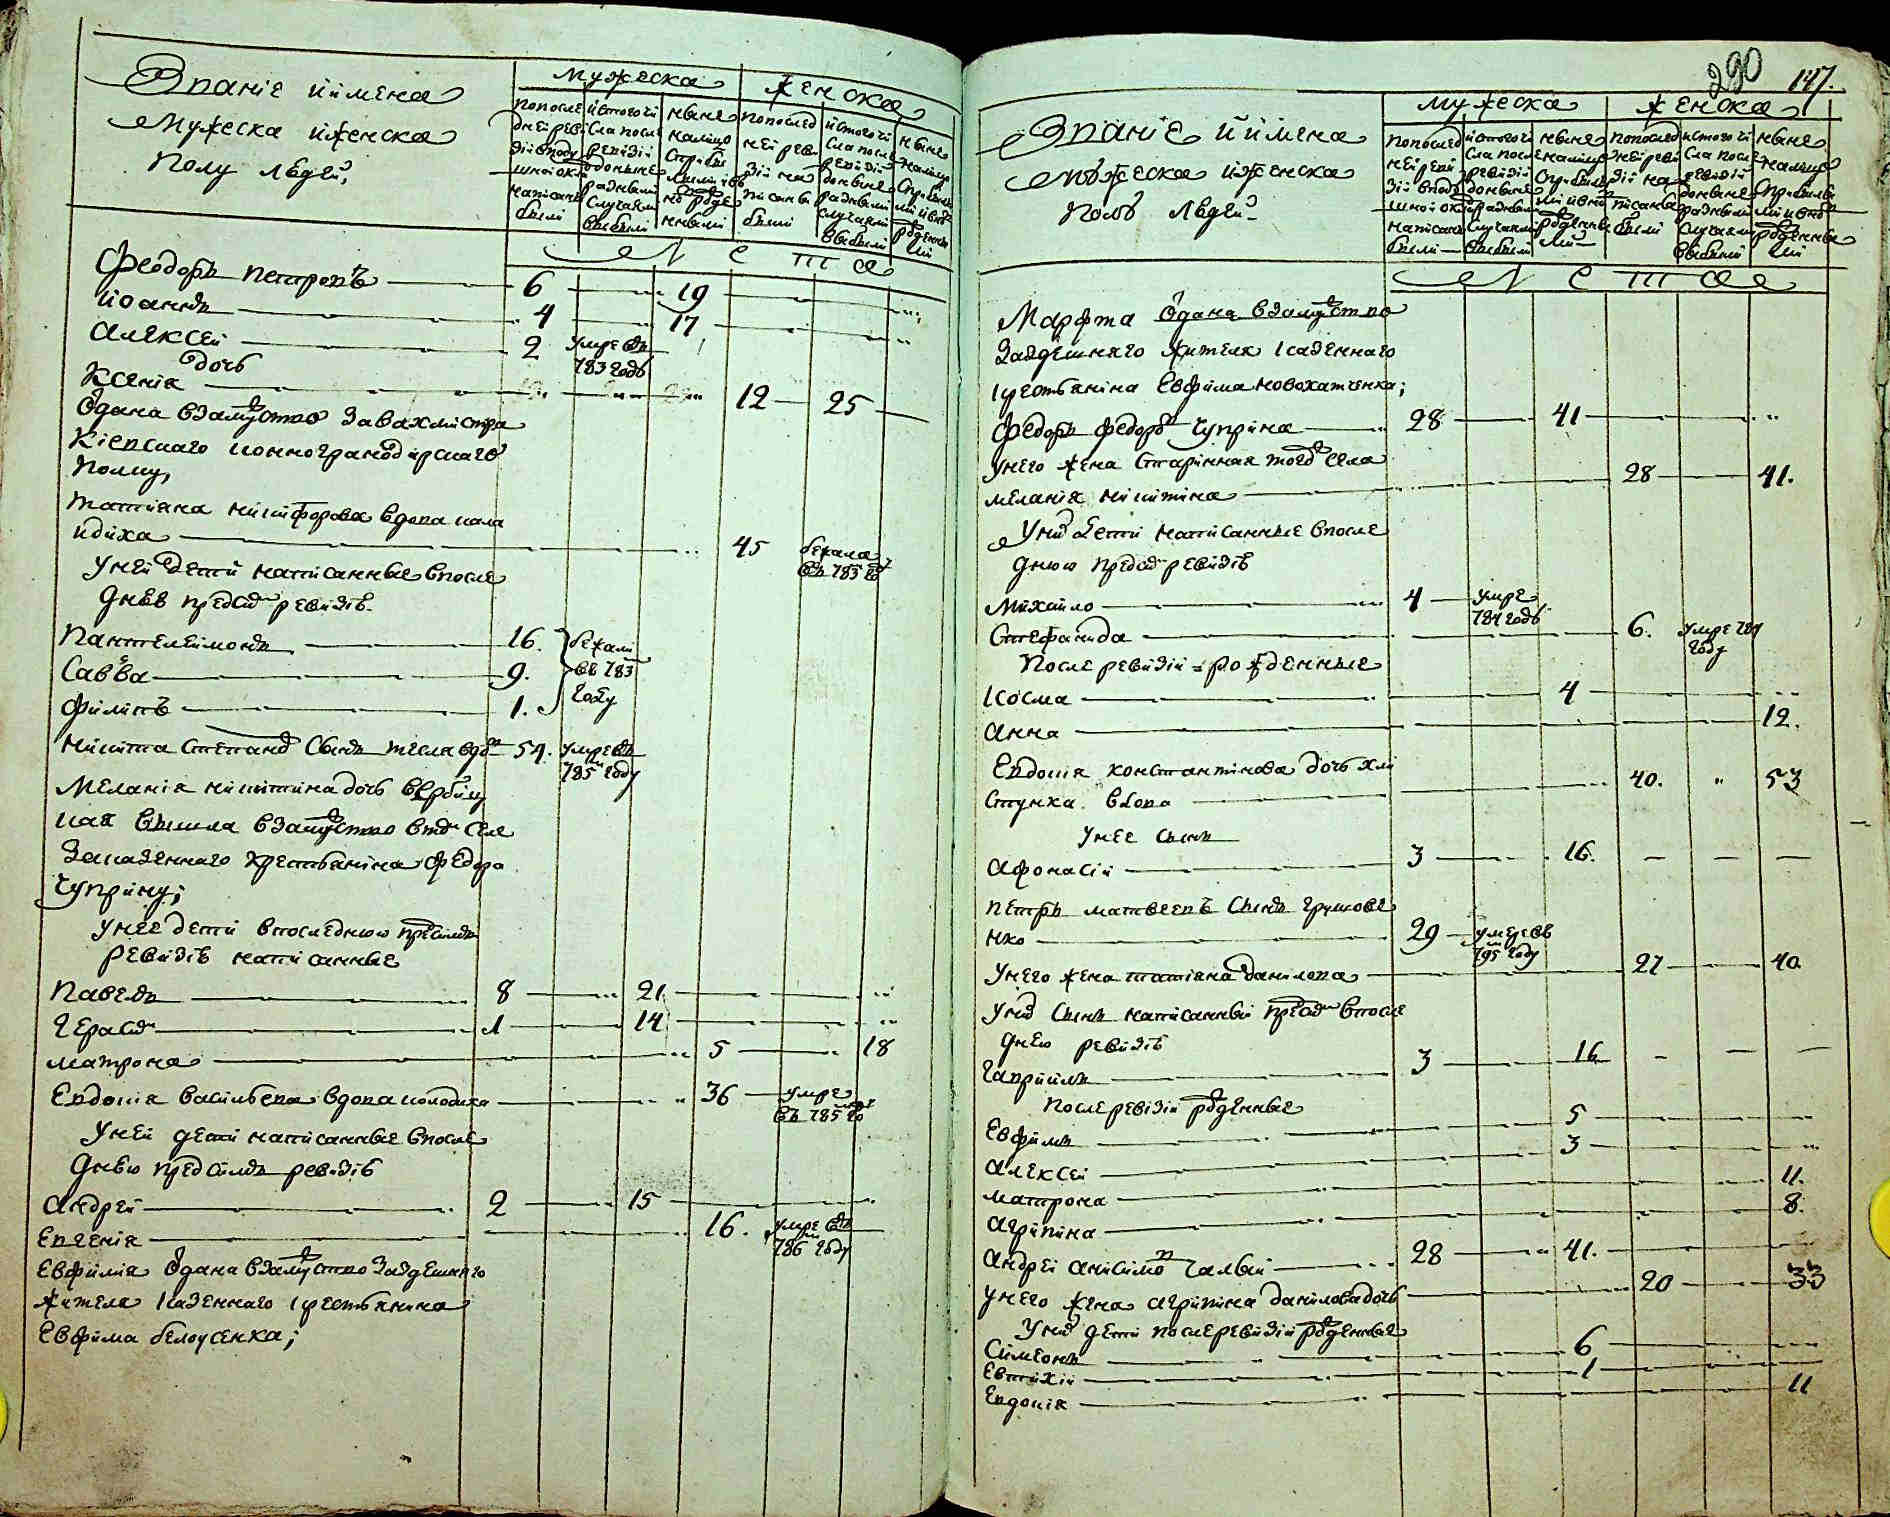 Званіе иимена
Мужеска иженска
полу людей,
мужеска
женска
попосле
дней реви
зіи вподу
шной окл
написаны
были
исто́го чи
сла после
ревизіи
доныне
разными
случаями
выбыли
ныне
налицо
попослед
ней реви
зіи на
писаны
были
исто́го чи
сла после
ревизіи
доныне
разными
случаями
выбыли
ныне
налицо
Л Е Т А
Феодоръ петровъ 6 19
Иоаннъ 4 17
Алексей 2 умре въ
783 годѣ
дочь
Ксенія 12 25
Одана взамужство завахмистра
Кіевскаго конногранодирскаго
полку,
татіана никифорова вдова кала
идиха 45 бежала
въ 783 го
Уней дети написанные впосле
днюю предсимъ ревизію
Пантелеймонъ 16. бежали
Савва 9. въ 783
Филипъ 1. году
Никита степановъ сынъ тесла вдовъ 54. умре въ
785 году
Меланія никитина дочь вербиц
кая вышла взамужство втомъ селе
заказенного крестьянина федора
Чуприну;
Унее дети впоследнюю предсимъ
ревизію написанные
Павелъ 8 21
Герасим 1 14
матрона 5 18
Евдокія васильева вдова колодика 36 умре
въ 785 го
Уней дети написанные впосле
днюю предсимъ ревизію
Андрей 2 15
Евгенія 16. умре въ
786 году
Евфимія Одана взамужство заздешнего
жителя казенного крестьянина
Евфима белоусенка;
290 147.
Званіе иимена
Мужеска иженска
полу людей
мужеска
женска
попослед
ней реви
зіи вподу
шной окл
написаны
были
исто́го чи
сла после
ревизіи
доныне
разными
случаями
выбыли
ныне
налицо
сприбыли
ми ивно
рожденны
ми
попослед
ней реви
зіи на
писаны
были
исто́го чи
сла после
ревизіи
доныне
разными
случаями
выбыли
ныне
налицо
сприбылы
ми ивно
рожденны
ми
Л Е Т А
Марфта Одана взамужство
Заздешняго жителя казенного
крестьянина Евфима новохатченка;
Федоръ федоровъ Чуприна 28 41
Унего жена старинная тогожъ села
меланія никитина 28 41.
Унихъ дети написанные впосле
днюю предсимъ ревизію
Михайло 4 умре
784 годѣ
Стефанида 6. умре 784
году
После ревизіи рожденные
Косма 4
Анна 12.
Евдокія константинова дочь хли
стунка вдова 40. 53
унее сынъ
Афонасій 3 16.
Петръ матвеевъ сынъ грушове
нко 29 умре въ
795 году
Унего жена татіана данилова 27 40
Унихъ сынъ написанный предсимъ впосле
днюю ревизію
Гавріилъ 3 16
После ревизіи рожденные
Евфимъ 5
Алексей 3
матрона 11.
Агрипина 8.
Андрей анисимовъ Чалый 28 41.
Унего жена агрипина данилова дочь 20 33
Унихъ дети после ревизіи рожденные
Симеонъ 6
Евтихій 1
Евдокія 11